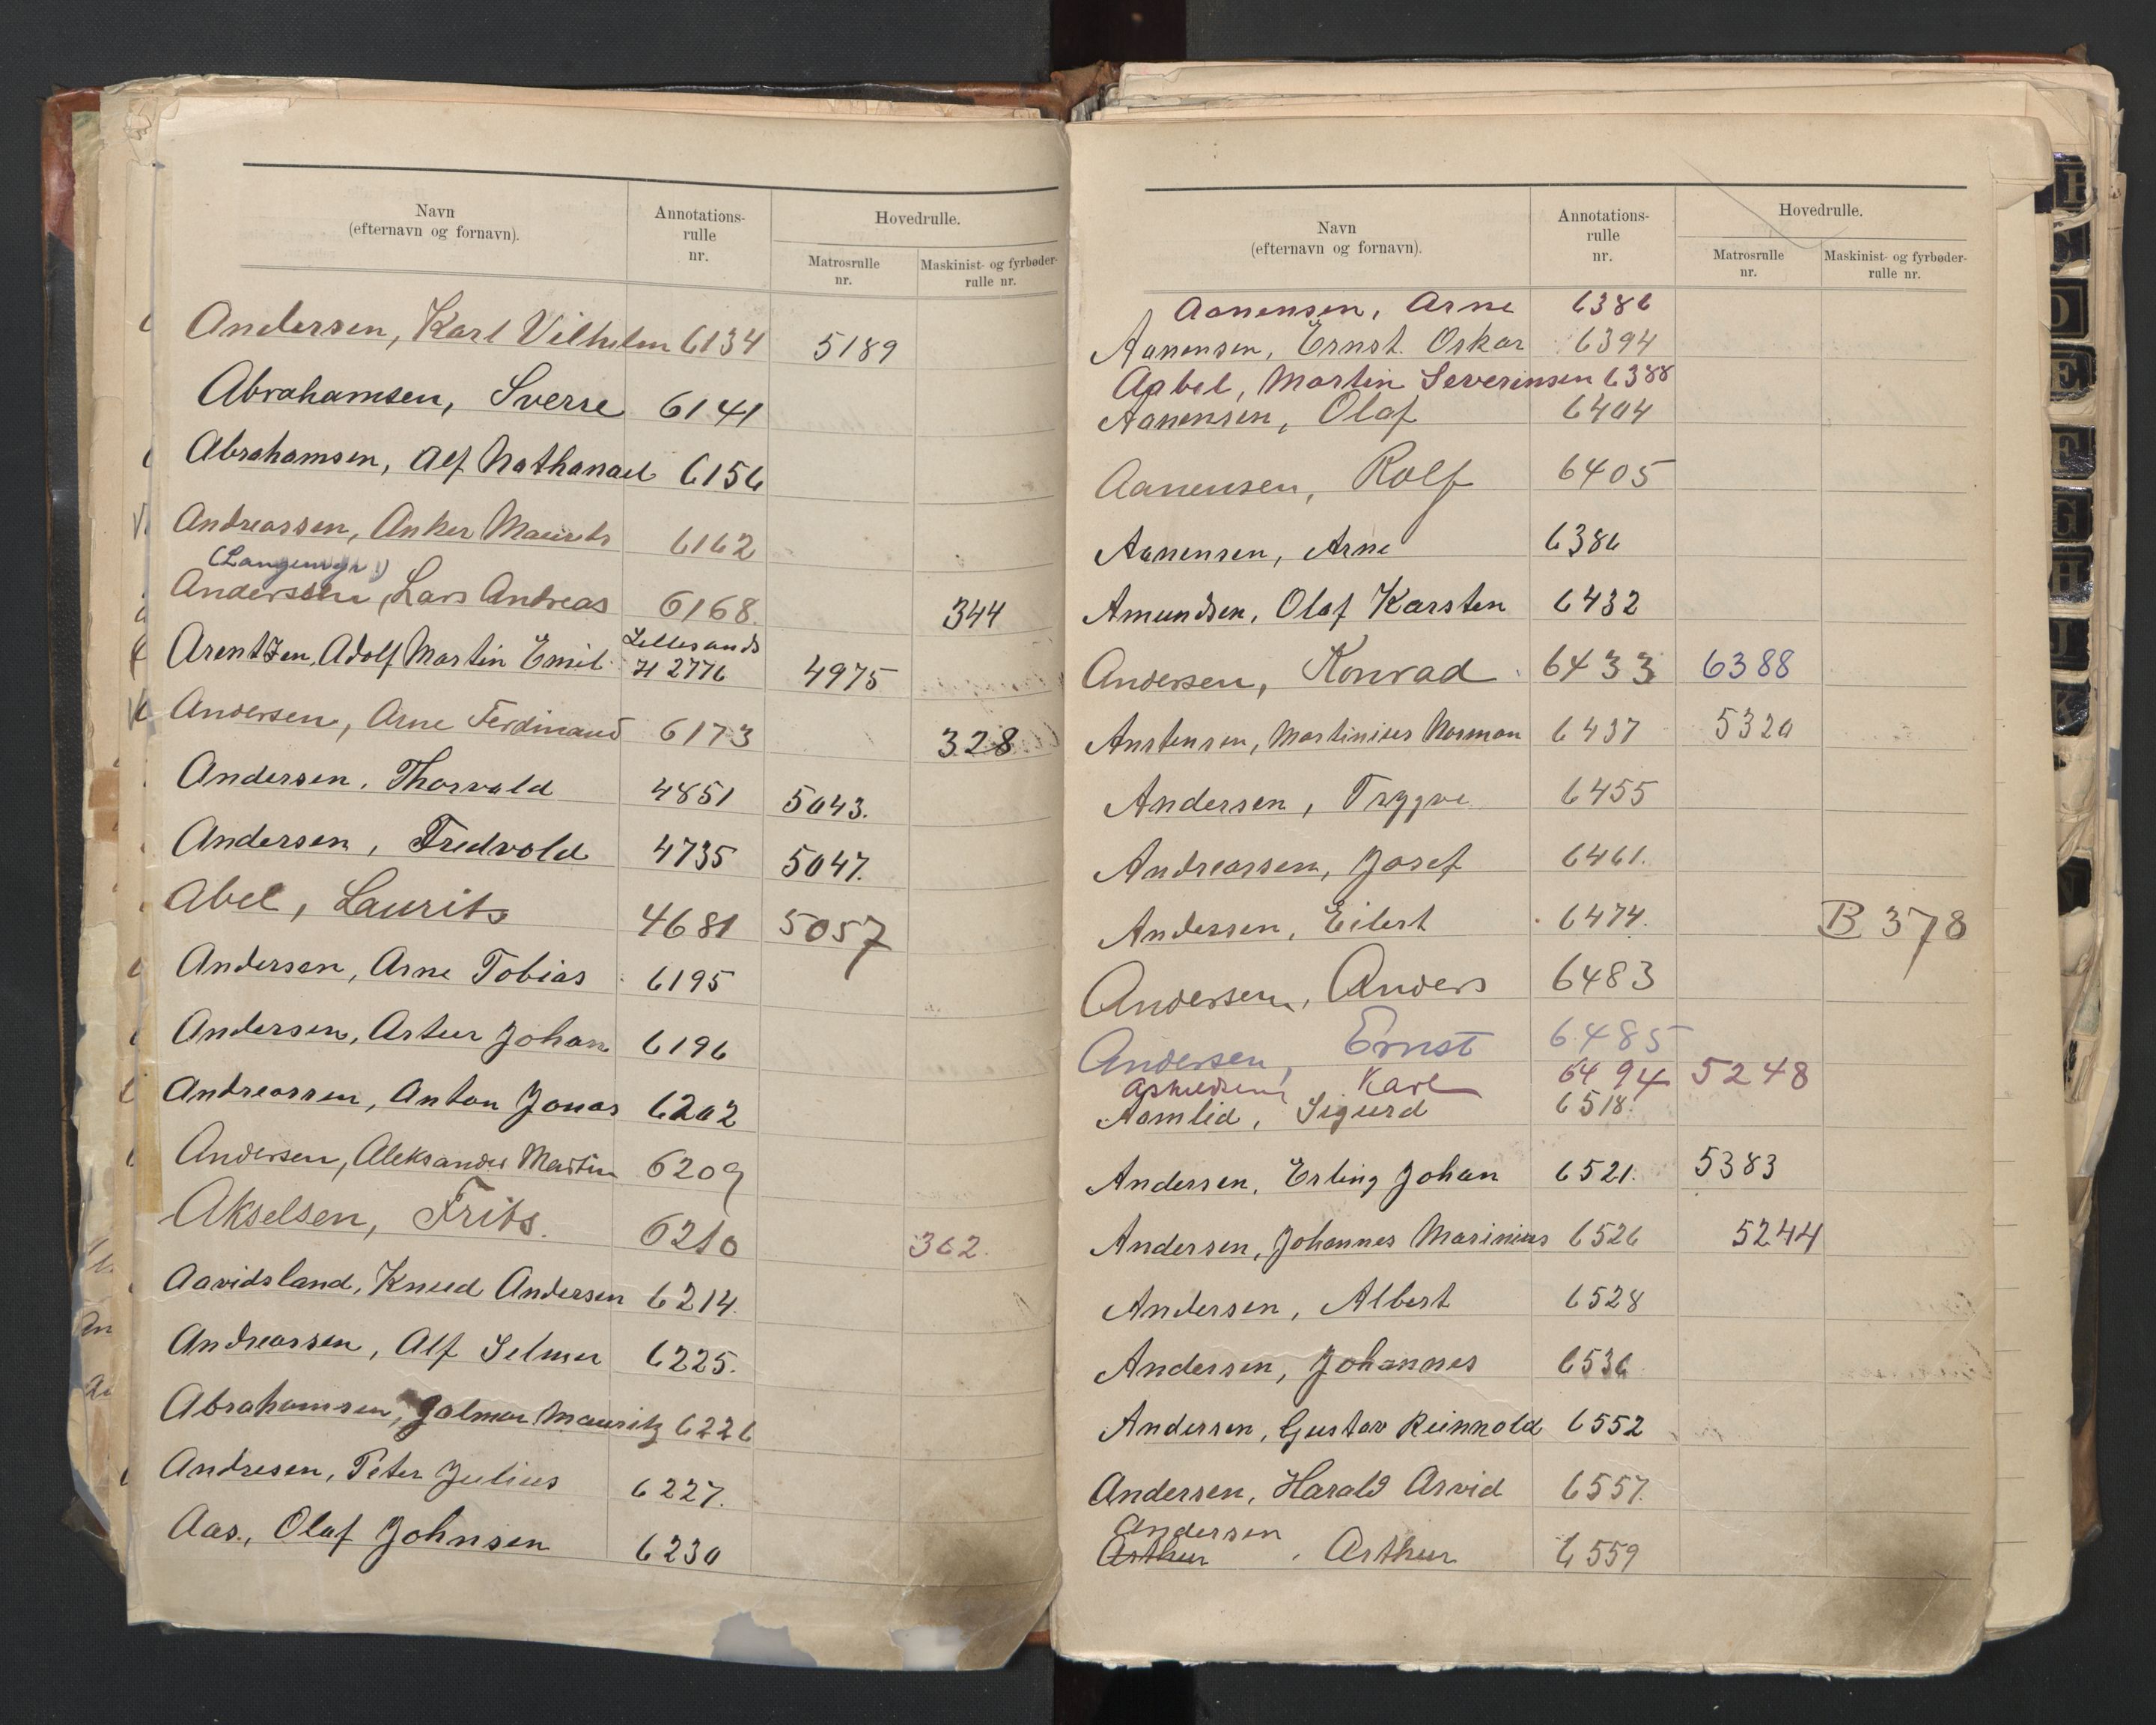 Navn
(efternavn og fornavn).
Annotations-
rulle
nr.
Hovedrulle.
Matrosrulle
nr.
Maskinist- og fyrbøder-
rulle nr.
Andersen, Karl Vilhelm 6134 5189
Abrahamsen, Sverre 6141
Abrahamsen, Alf Nathanael 6156
Andreassen, Anker Maurits 6162
Andersen, Lars Andreas 6168. 344
Lillesands
Arentzen, Adolf Martin Emil H 2776 4975
Andersen, Arne Ferdinand 6173 328
Andersen, Thorvald 4851 5043.
Andersen, Fredvold 4735 5047.
Abel, Laurits 4681 5057
Andersen, Arne Tobias 6195
Andersen, Artur Johan 6196
Andreassen, Anton Jonas 6202
Andersen, Aleksander Martin 6209
Akselsen, Frits. 6210 362.
Aavidsland, Knud Andersen 6214.
Andreassen, Alf Selmer 6225.
Abrahamsen, Hjalmar Mauritz 6226
Andresen, Peter Julius 6227.
Aas., Olaf Johnsen 6230
Navn
(efternavn og fornavn).
Annotations-
rulle
nr.
Hovedrulle.
Matrosrulle
nr.
Maskinist- og fyrbøder-
rulle nr.
Aanensen, Arne 6386
Aanensen, Ernst Oskar 6394
Aabel, Martin Severinsen 6388
Aanensen, Olaf 6404
Aanensen, Rolf 6405
Aanensen, Arne 6386
Amundsen, Olaf Karsten 6432
Andersen, Konrad 6433 6388
Anstensen, Martinius Norman 6437 5320
Andersen, Trygve 6455
Andreassen, Josef 6461.
Andersen, Eilert 6474. B 378
Andersen, Anders 6483
Andersen, Ernst 6485
Karl 6494 5248
Aamlid, Sigurd 6518.
Andersen, Erling Johan 6521. 5383
Andersen, Johannes Marinius 6526 5244
Andersen, Albert 6528
Andersen, Johannes 6536
Andersen, Gustav Reinhold 6552
Andersen, Harald Arvid 6557.
Andersen
Arthur, Arthur 6559